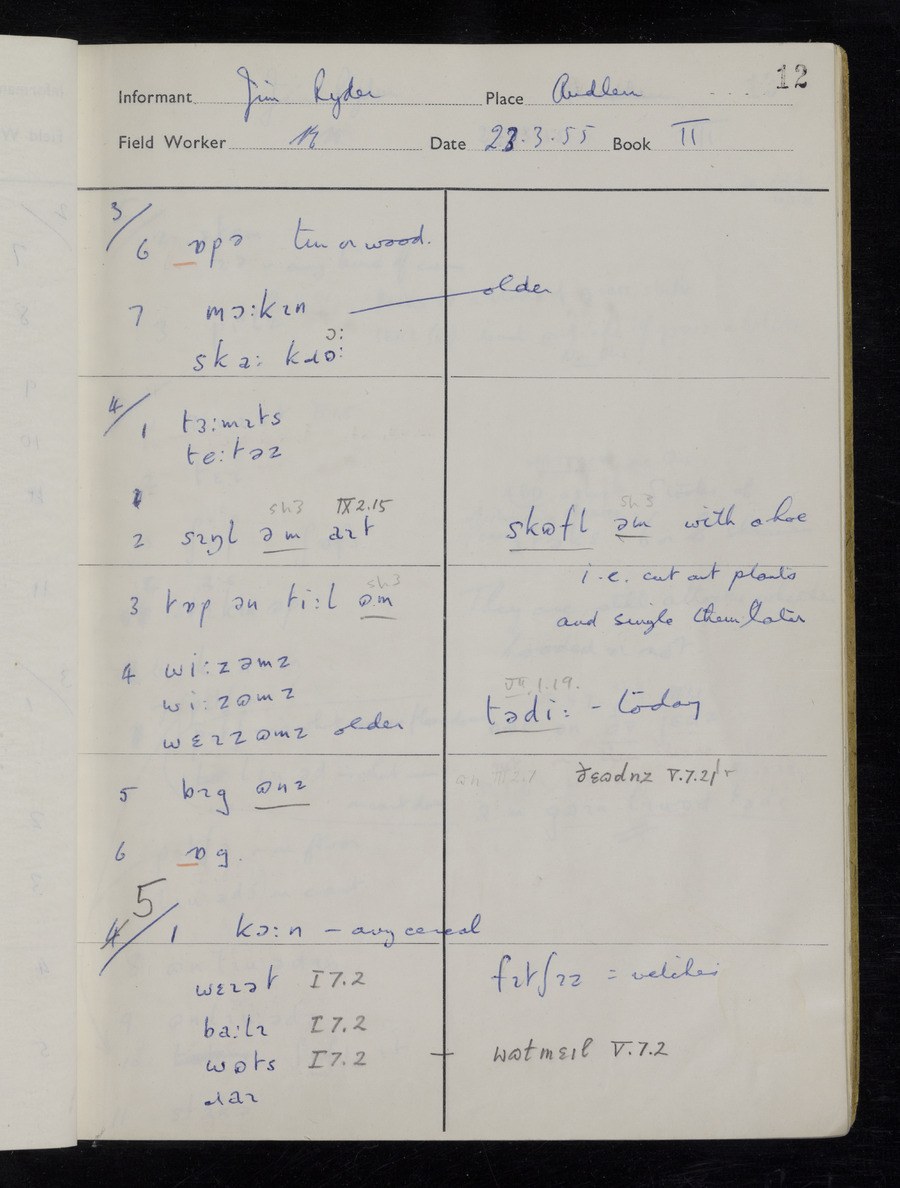 12
Informant Jim Ryder Place Audlem
Field Worker Date 23.3.55 Book II
3/
6 ɒpə tin or wood.
7 mɔ:kɪn older
ɔ:
ska: kɹɒ:
4/
1 tɜ:mɪts
te:təz
sh3 IX 2.15 sh3
2 sɪŋl əm aɪt skɷfl əm with a hoe
i.e. cut out plants
sh3
3 tɒp ən ti:l ɷm and single them later
4 wi:zəmz
VII.1.19.
wi:zɷmz tədi: - today
wɛɪzɷmz older
5 bɪg ɷnz ɷn III 2.7 V.7.21
6 ɒg.
5
4/ 1 kɔ:n - any cereal
wɛɪət I 7.2 fɪtʃɪz = vetches
ba:lɪ I 7.2
wɷts I 7.2 wɷtmɛɪl V.7.2
ɹaɪ